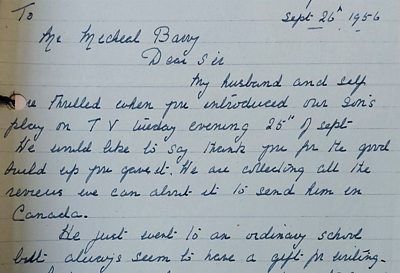 To
Sept 26th 1956
Mr Micheal Barry
Dear Sir
My husband and self
are thrilled when you introduced our son's
play on T V Tuesday evening 25th of Sept
We would like to say thank you for the good
build up you gave it. We are collecting all the
reviews we can about it to send him in
Canada.
He just went to an ordinary school
but always seem to have a gift for writing.